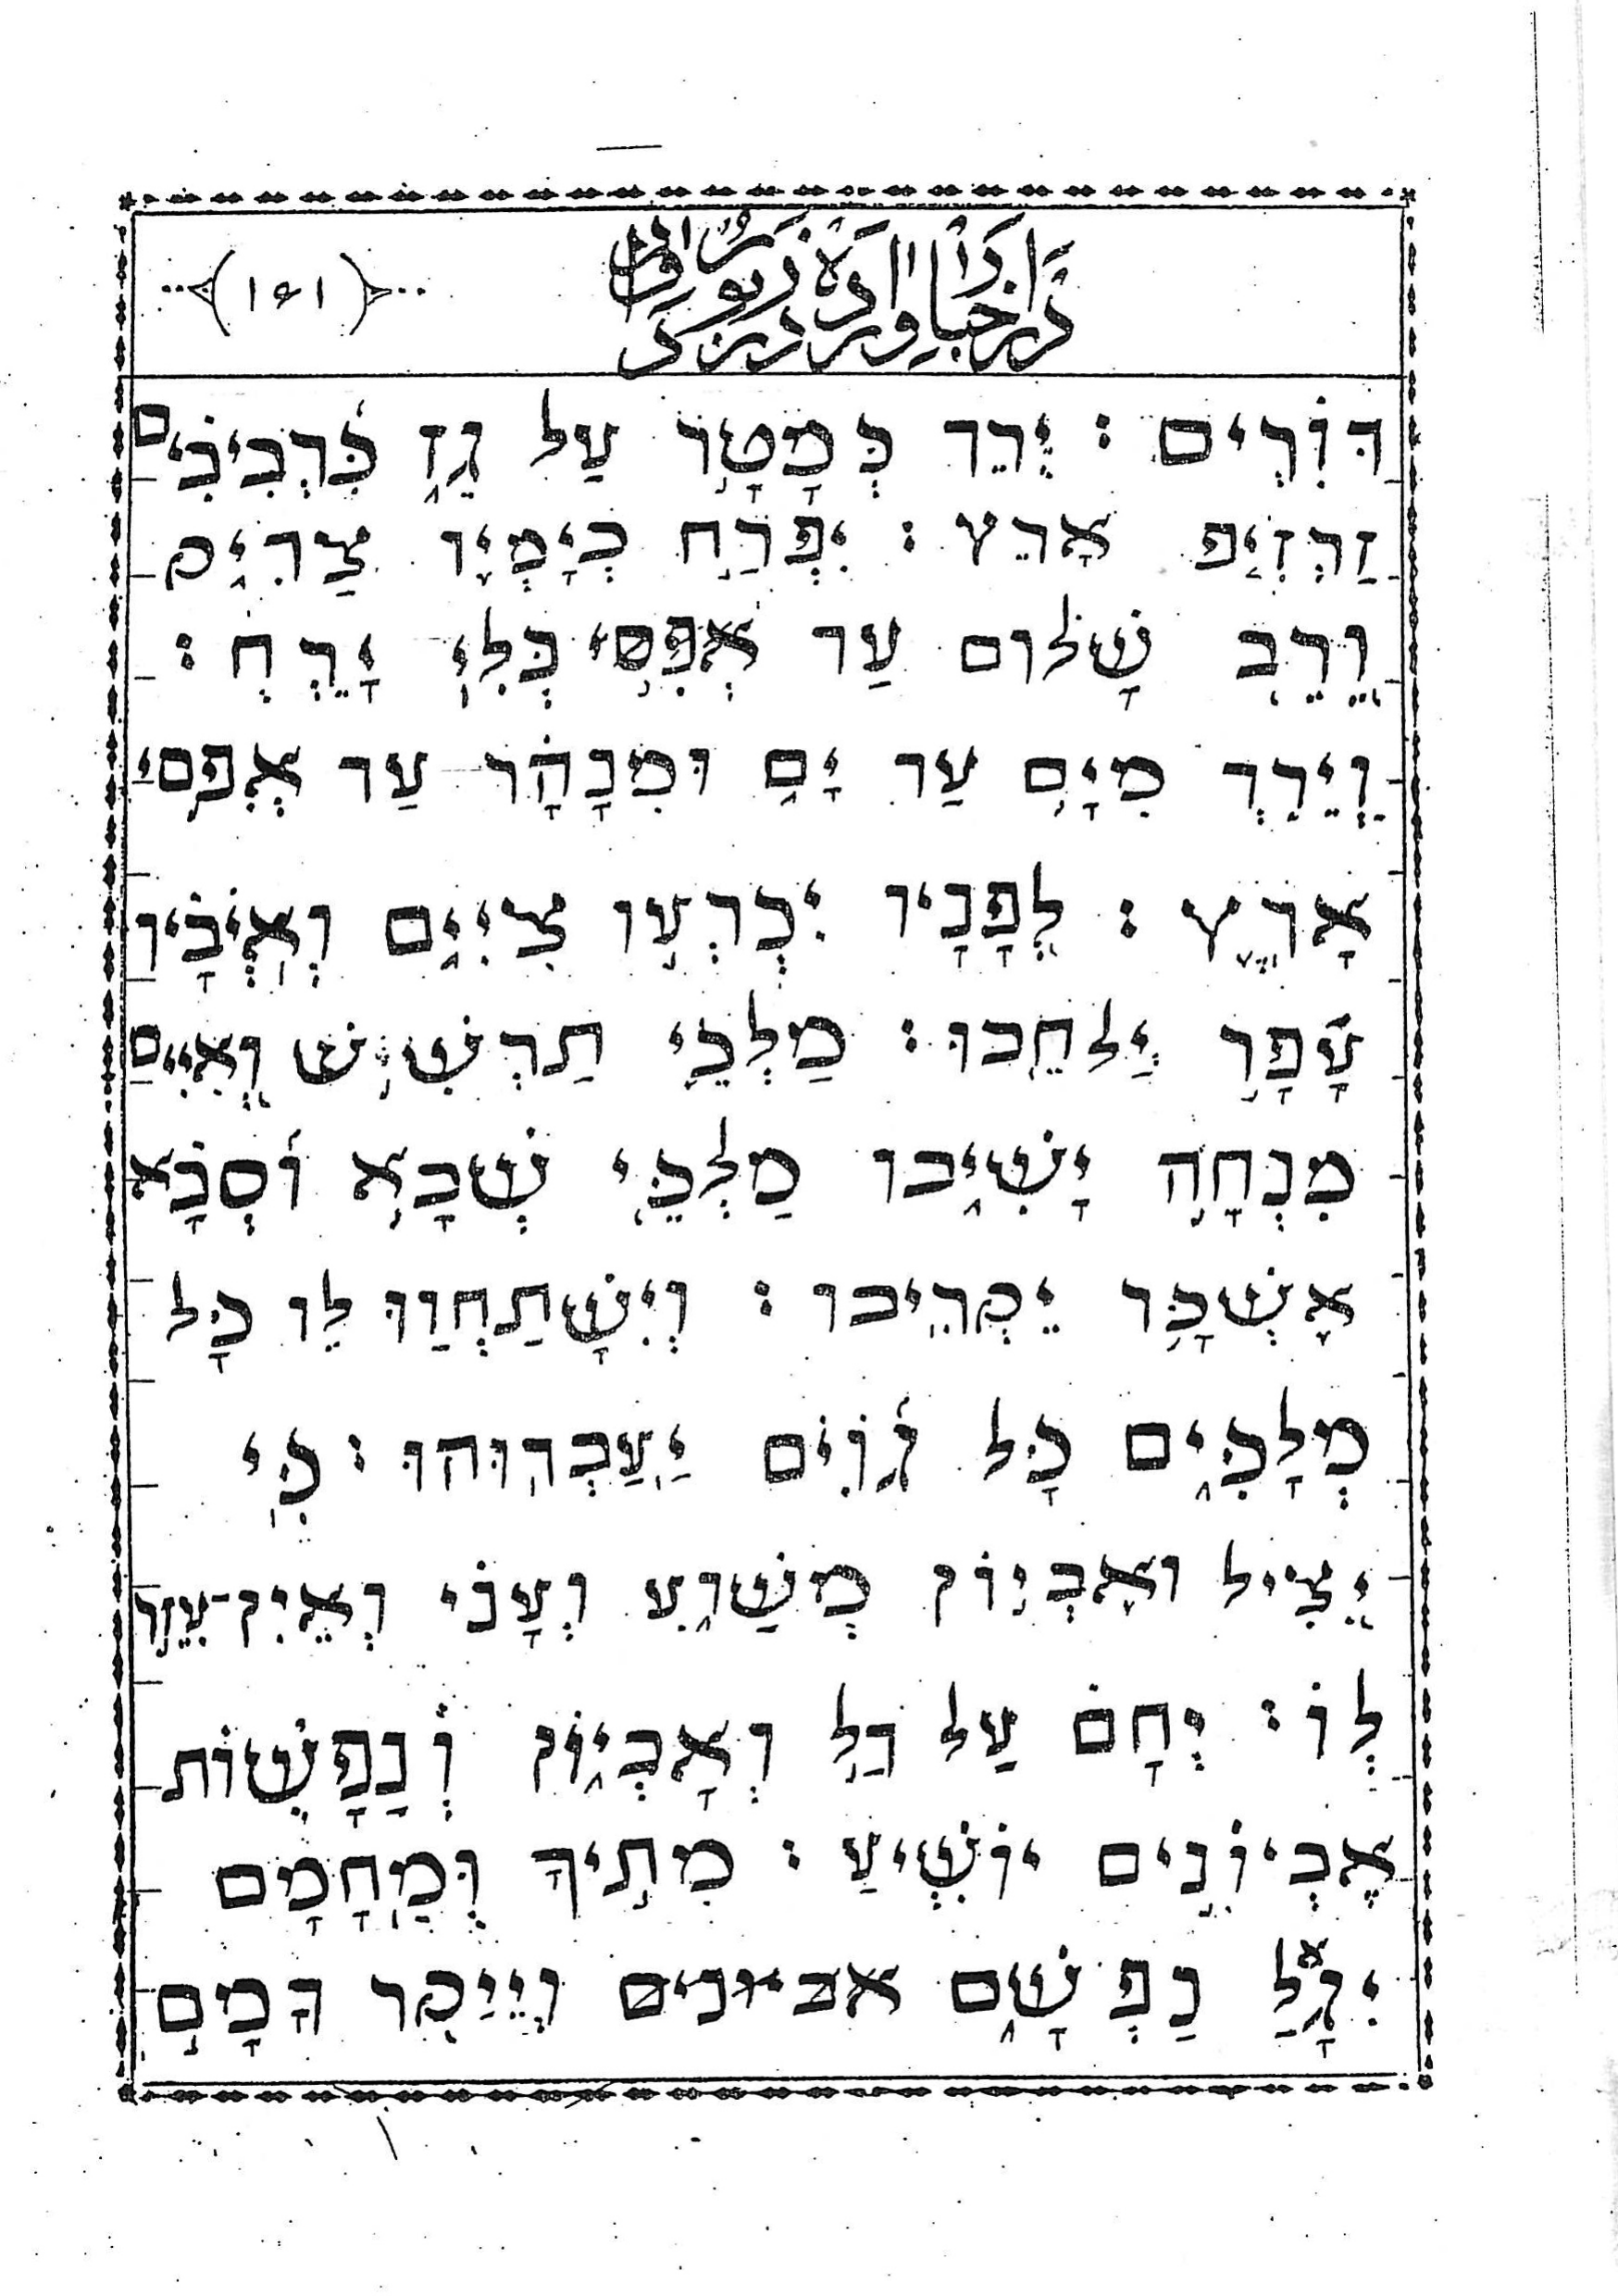 (۱۵۱)
דּוֹרִים : יֵרֵד כְּמָטָר עַל גֵז כִּרְבִיבִים
זַרְזִיף אָרֵץ : יִפְרַח בְיָמְיו צַדִיק
וְרֵב שָׁלום עַד אֶפְסִי בְּלִי יָרֵחְ :
וְיֵרְדְ מִיָם עַד יָם וּמִנָהָר עַד אֶפְסי
אָרֶץ : לְפָנָיו יִכְרְעו צִיִים וְאֹיְבָיו
עָפָר יַלחֵכוּ : מַלְכֵי תַרְשִׁישׁ וְאִיים
מִנְחָה יָשִׁיבו מַלְכֵּי שְׁבָא וּסְבָא
אֶשְׁכָּר יַקְרִיבו : וְיִשָׁתַחְוַוּ לֵו כָּל
מְלָכִּים כָּל גוֹיִם יַעַבְדוּהוּ : כִּי
יַצִיל ואֶבְיוֹן מְשַׁוֵע וְעָנִי וְאֵין־עֵזֵר
לְוֹ : יְחָם עַל דַל וְאָבְיוֹן וְנַפָשׁוֹת
אֶבְיוֹנִים יוֹשִׁיעַ : מִתִיךָ וּמֵחָמָם
יִגָאלַ נַפְשָׁם אביונים וְיֵיקַר דָמָם